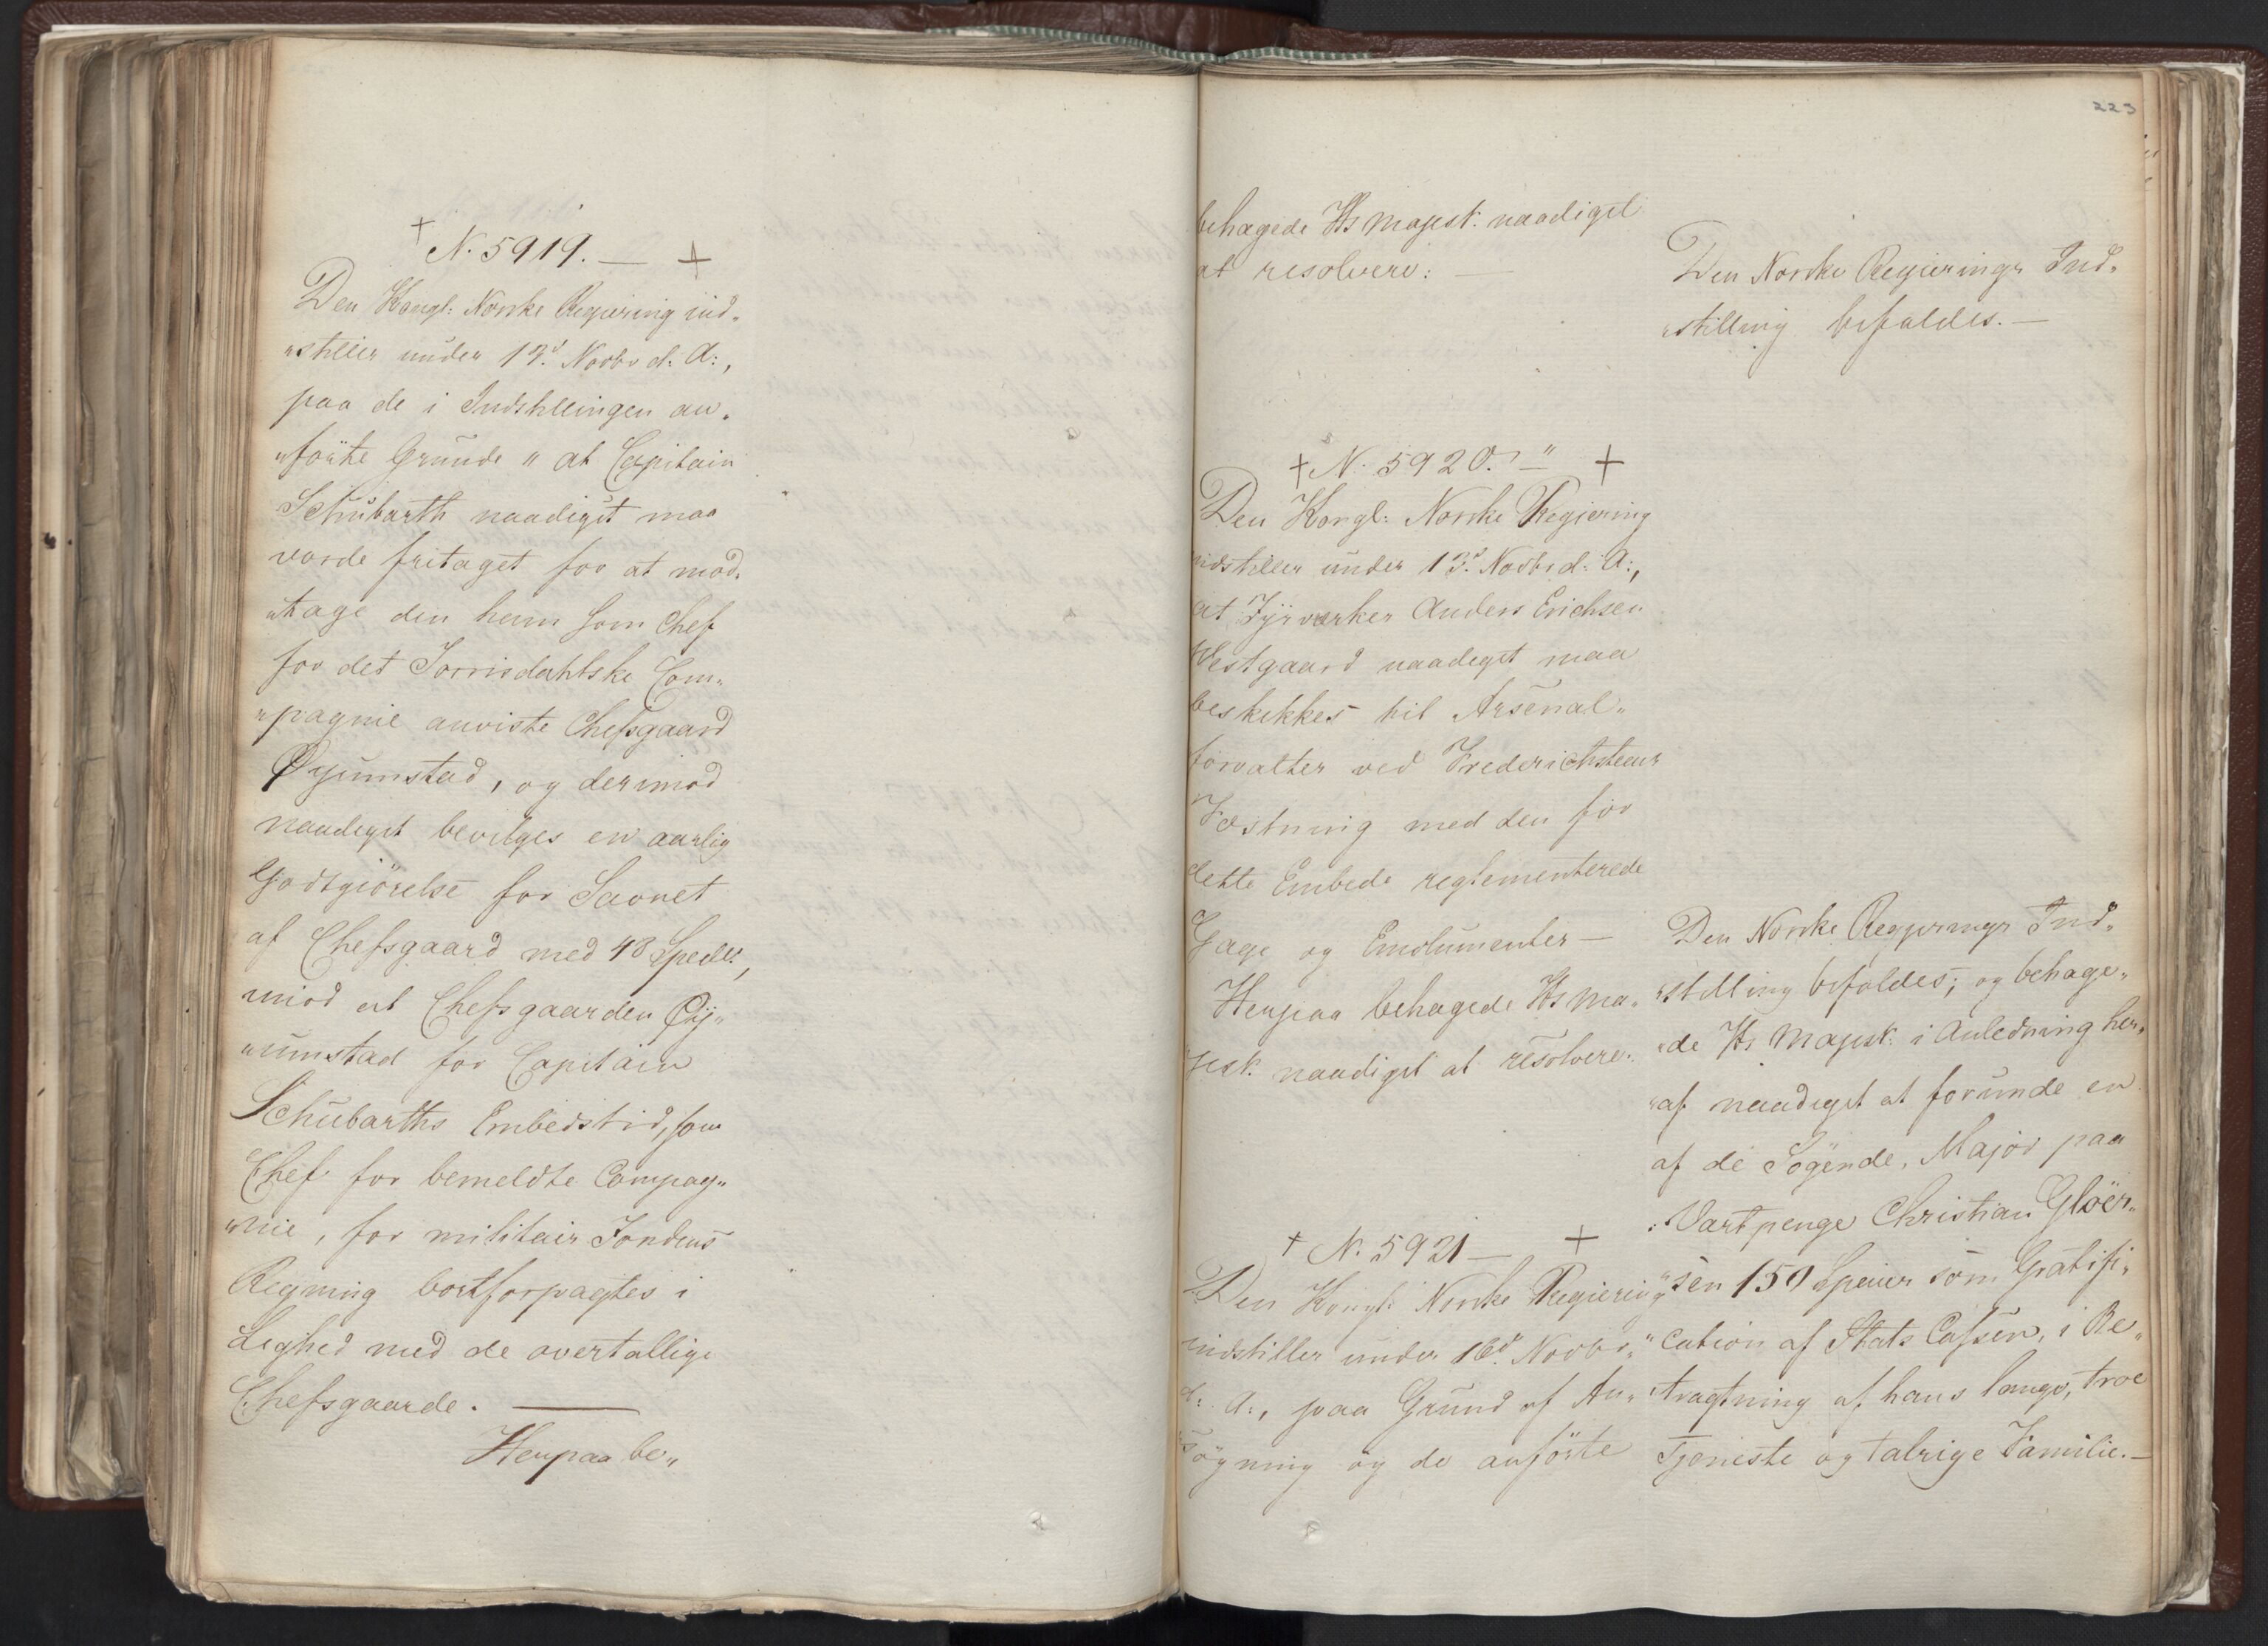 N. 5919. —
Den Kongl: Norske Regiering ind„
„stiller under 13d. Novbr d: A:,
paa de i Indstillingen an„
„förte Grunde „ at Capitain
Schübarth naadigst maa
vorde fritaget for at mod„
„tage den ham som Chef
for det Jorrisdahlske Com„
„pagnie anviste Chefsgaard
Öyumstad, og derimod
naadigst bevilges en aarlig
Godtgiörelse for Savnet
af Chefsgaard med 48 Specier,
mod at Chefsgaarden Öÿ„
„umstad for Capitain
Schubarths Embedstid, som
Chef for bemeldte Compag„
„nie, for militair Fondens
Regning bortforpagtes i
Lighed med de overtallige
Chefsgaarde. —
Herpaa be„
223
behagede Hs Majest: naadigst
at resolvere: —
Den Norske Regierings Ind„
„stilling bifaldes. —
N. 5920. —"
Den Kongl: Norske Regiering
indstiller under 13d. Novbr d: A:,
at Fyrverker Anders Erichsen
Westgaard naadigst maa
beskikkes til Arsenal„
forvalter ved Frederichsteens
Fæstning med den for
dette Embede reglementerede
Gage og Emolumenter —
Herpaa behagede Hs Ma„
jest. naadigst at resolvere:
Den Norske Regierings Ind„
„stilling bifaldes; og behage„
„de Hs Majest: i Anledning her„
„af naadigst at forunde en
af de Sögende, Major paa
Vartpenge Christian Glöer„
„sen 150 Specier som Gratifi„
„cation af Stats Cassen, i Be„
„tragtning af hans lange, troe
Tjeneste og talrige Familie. —
N. 5921 —
Den Kongl: Norske Regiering
indstiller under 16d. Novbr
d: A:, paa Grund af An„
„sögning og de anförte